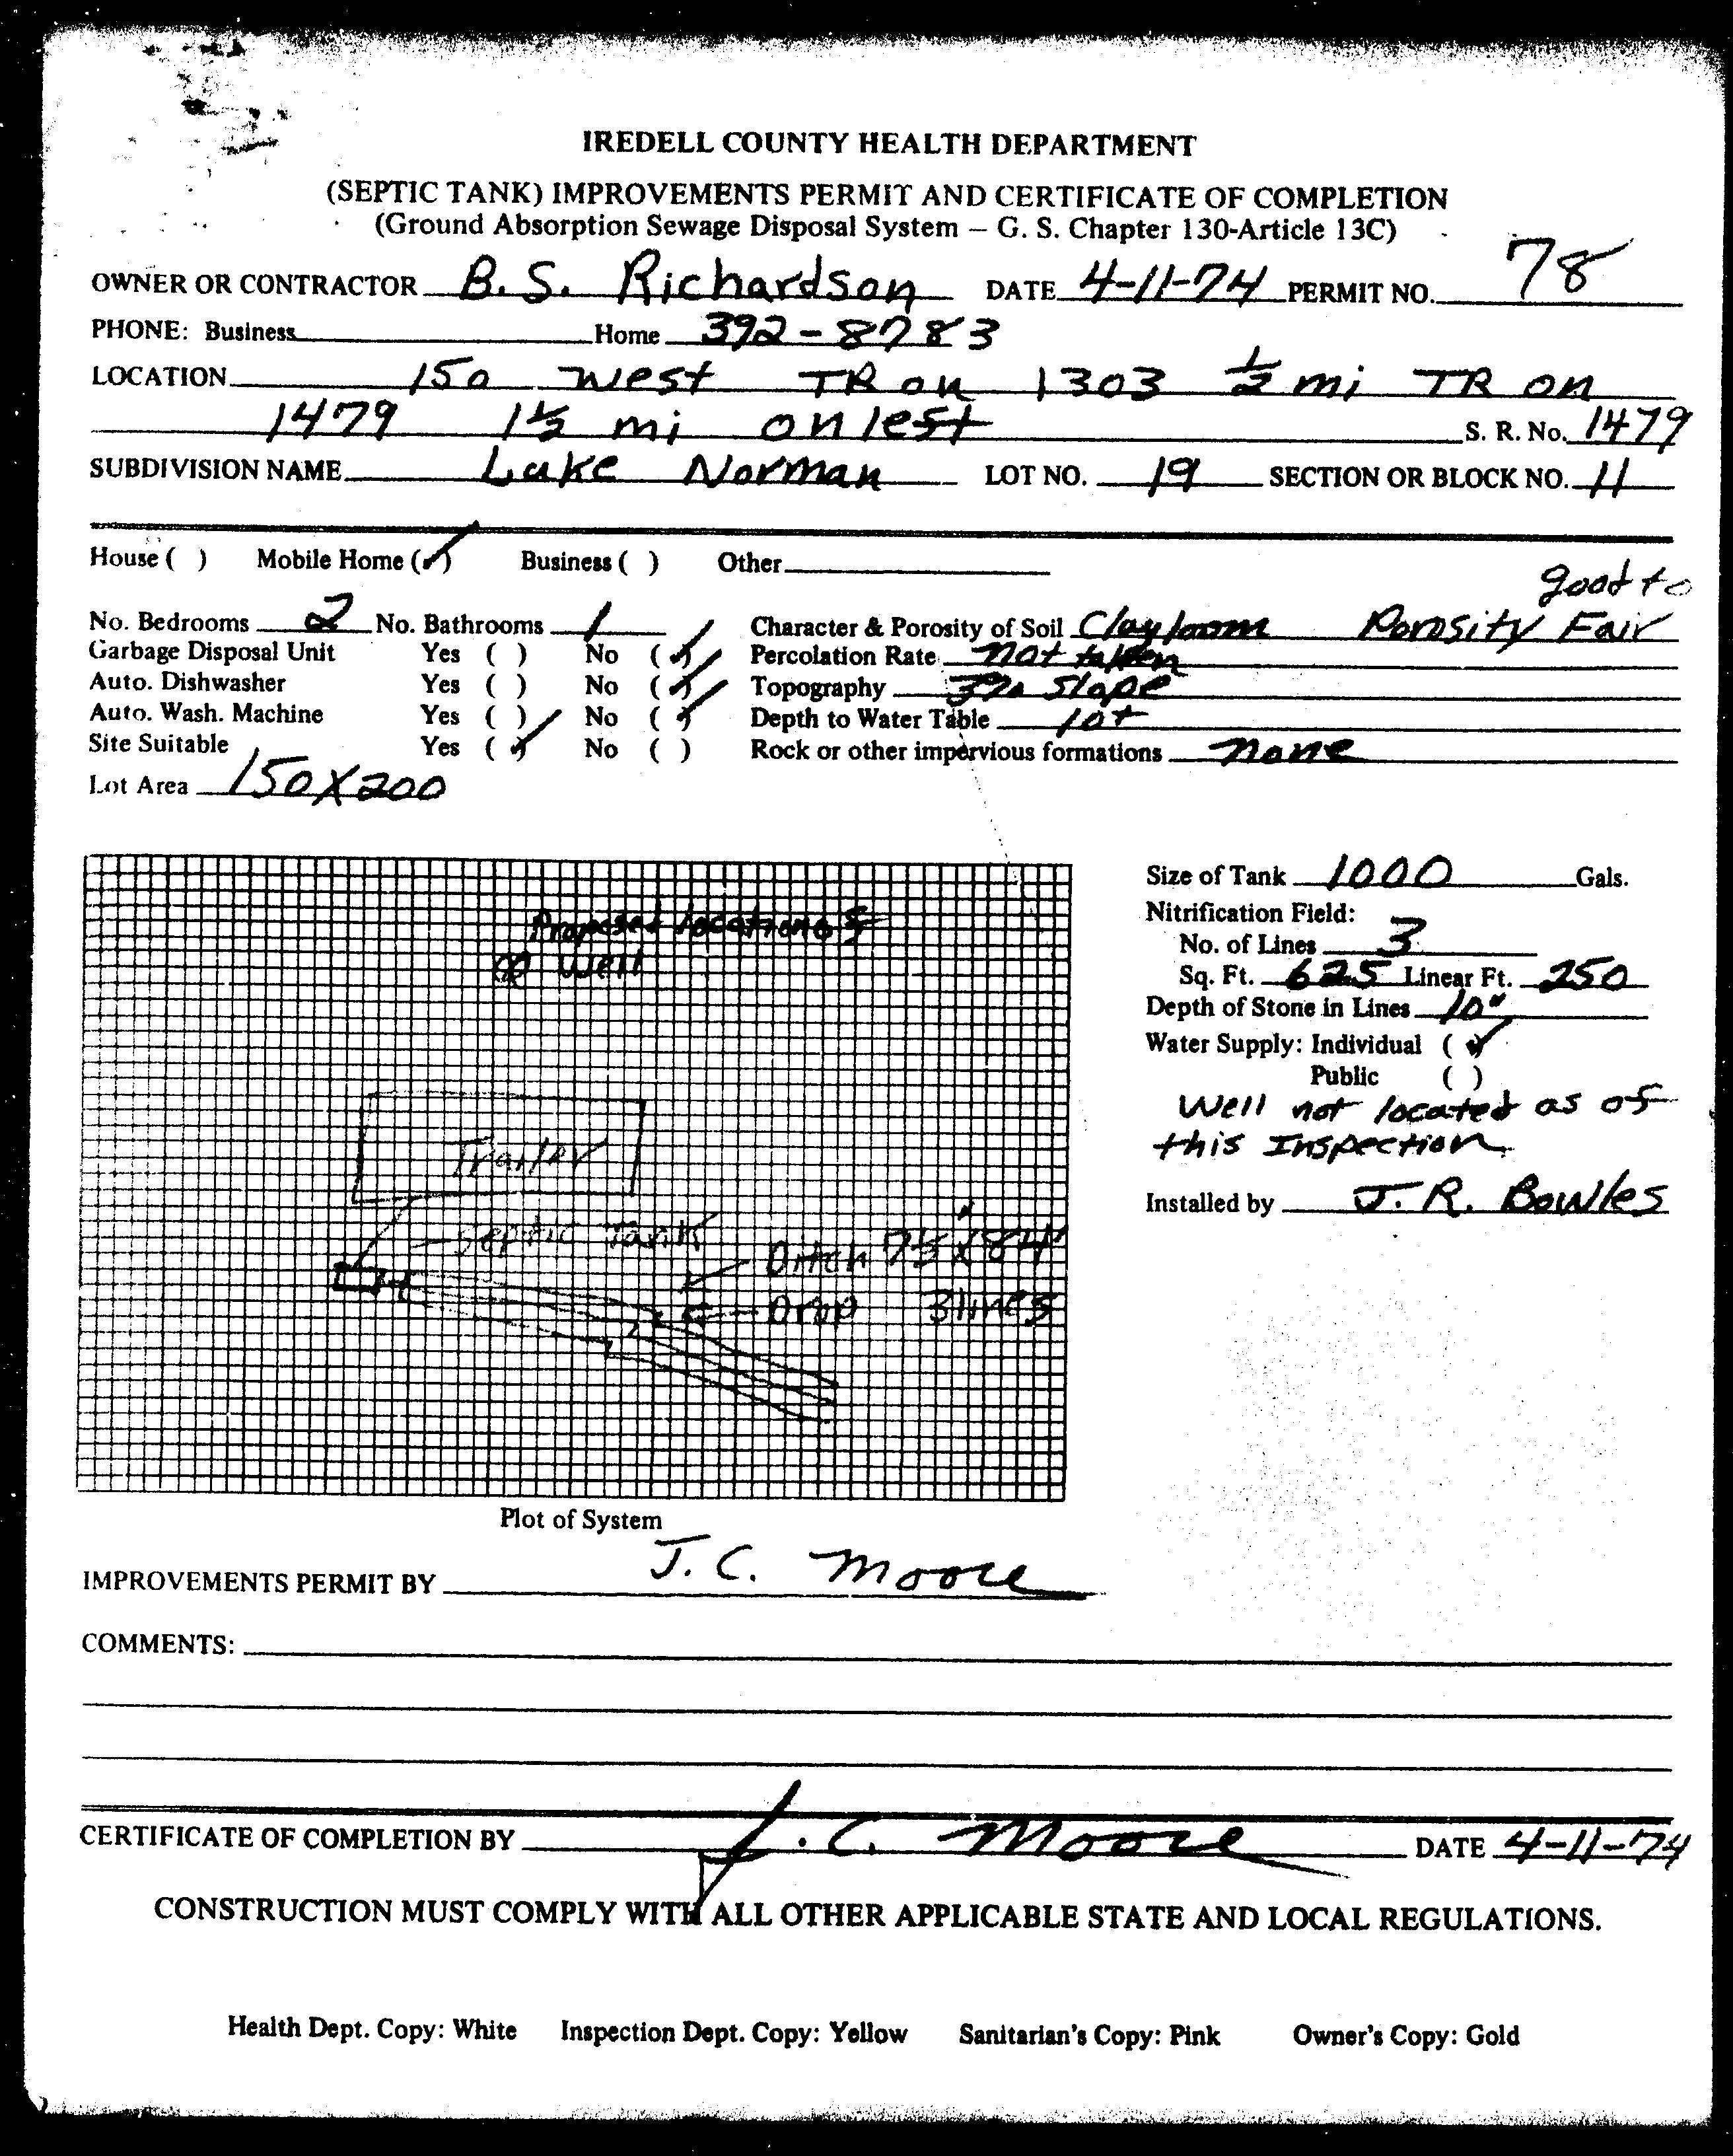 IREDELL COUNTY HEALTH DEPARTMENT
(SEPTIC TANK) IMPROVEMENTS PERMIT AND CERTIFICATE OF COMPLETION
(Ground Absorption Sewage Disposal System – G. S. Chapter 130-Article 13C)
OWNER OR CONTRACTOR B.S. Richardson DATE 4-11-74 PERMIT NO. 78
PHONE: Business Home 392-8783
LOCATION 150 West TR on 1303 ½ mi TR on
1479 1½ mi on left S. R. No. 1479
SUBDIVISION NAME Lake Norman LOT NO. 19 SECTION OR BLOCK NO. 11
House ( ) Mobile Home (✓) Business ( ) Other
good to
No. Bedrooms 2 No. Bathrooms 1 Character & Porosity of Soil Clay loom Porosity Fair
Garbage Disposal Unit Yes ( ) No (✓) Percolation Rate not taken
Auto. Dishwasher Yes ( ) No (✓) Topography 3% Slope
Auto. Wash. Machine Yes ( ) No (✓) Depth to Water Table 10+
Site Suitable Yes (✓) No ( ) Rock or other impervious formations none
Lot Area 150X200
Size of Tank 1000 Gals.
Nitrification Field:
No. of Lines 3
Sq. Ft. 625 Linear Ft. 250
Depth of Stone in Lines 10"
Water Supply: Individual (✓)
Public ( )
Well not located as of
this Inspection
Installed by J. R. Bowles
Proposed location of
Well
Trailer
Septic Tank
Ditch 7½ X 84'
Drop 3 lines
Plot of System
IMPROVEMENTS PERMIT BY J. C. Moore
COMMENTS:
CERTIFICATE OF COMPLETION BY J. C. Moore DATE 4-11-74
CONSTRUCTION MUST COMPLY WITH ALL OTHER APPLICABLE STATE AND LOCAL REGULATIONS.
Health Dept. Copy: White Inspection Dept. Copy: Yellow Sanitarian's Copy: Pink Owner's Copy: Gold